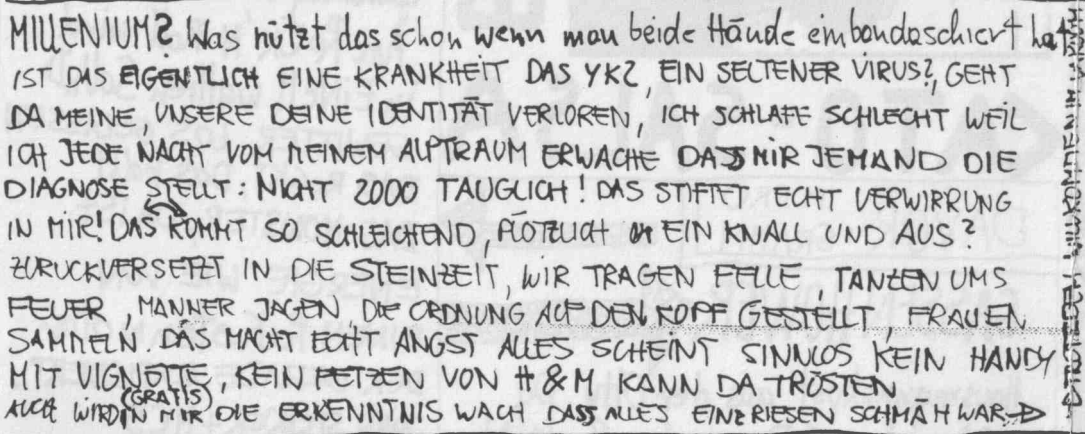 MILLENIUM? Was nützt das schon wenn man beide Hände einbandaschiert hat
IST DAS EIGENTLICH EINE KRANKHEIT DAS YK2, EIN SELTENER VIRUS?, GEHT
DA MEINE, UNSERE DEINE IDENTITÄT VERLOREN, ICH SCHLAFE SCHLECHT WEIL
ICH JEDE NACHT VOM MEINEM ALPTRAUM ERWACHE DASS MIR JEMAND DIE
DIAGNOSE STELLT: NICHT 2000 TAUGLICH! DAS STIFTET ECHT VERWIRRUNG
IN MIR! DAS KOMMT SO SCHLEICHEND, PLÖTZLICH EIN KNALL UND AUS?
ZURUCKVERSETZT IN DIE STEINZEIT, WIR TRAGEN FELLE, TANZEN UMS
FEUER, MANNER JAGEN, DIE ORDNUNG AUF DEN KOPF GESTELLT, FRAUEN
SAMMELN DAS MACHT ECHT ANGST ALLES SCHEINT SINNLOS KEIN HANDY
MIT VIGNETTE, KEIN FETZEN VON H & M KANN DA TRÖSTEN
AUCH WIRD (GRATIS) IN MIR DIE ERKENNTNIS WACH DASS ALLES EIN RIESEN SCHMÄH WAR →